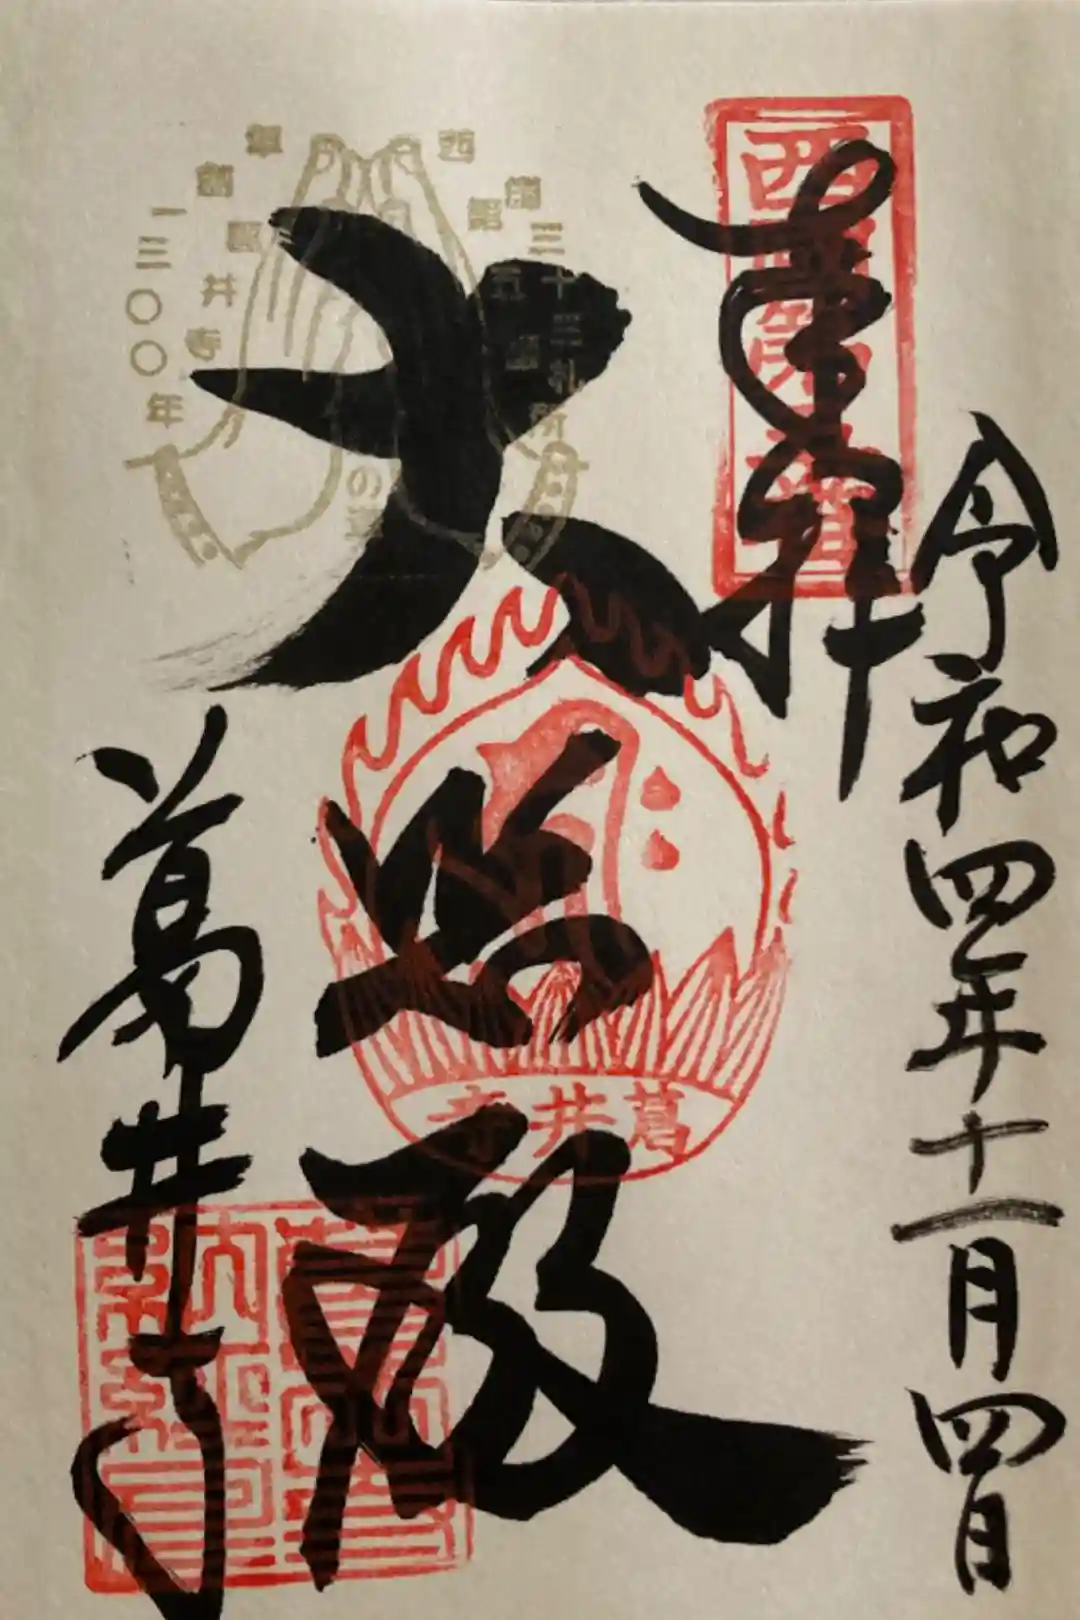 令和四年十一月四日
奉拝
西国第五番
大悲殿
葛井寺
葛井寺
西国三十三札所
第五番
葛井寺
草創一三〇〇年
の道